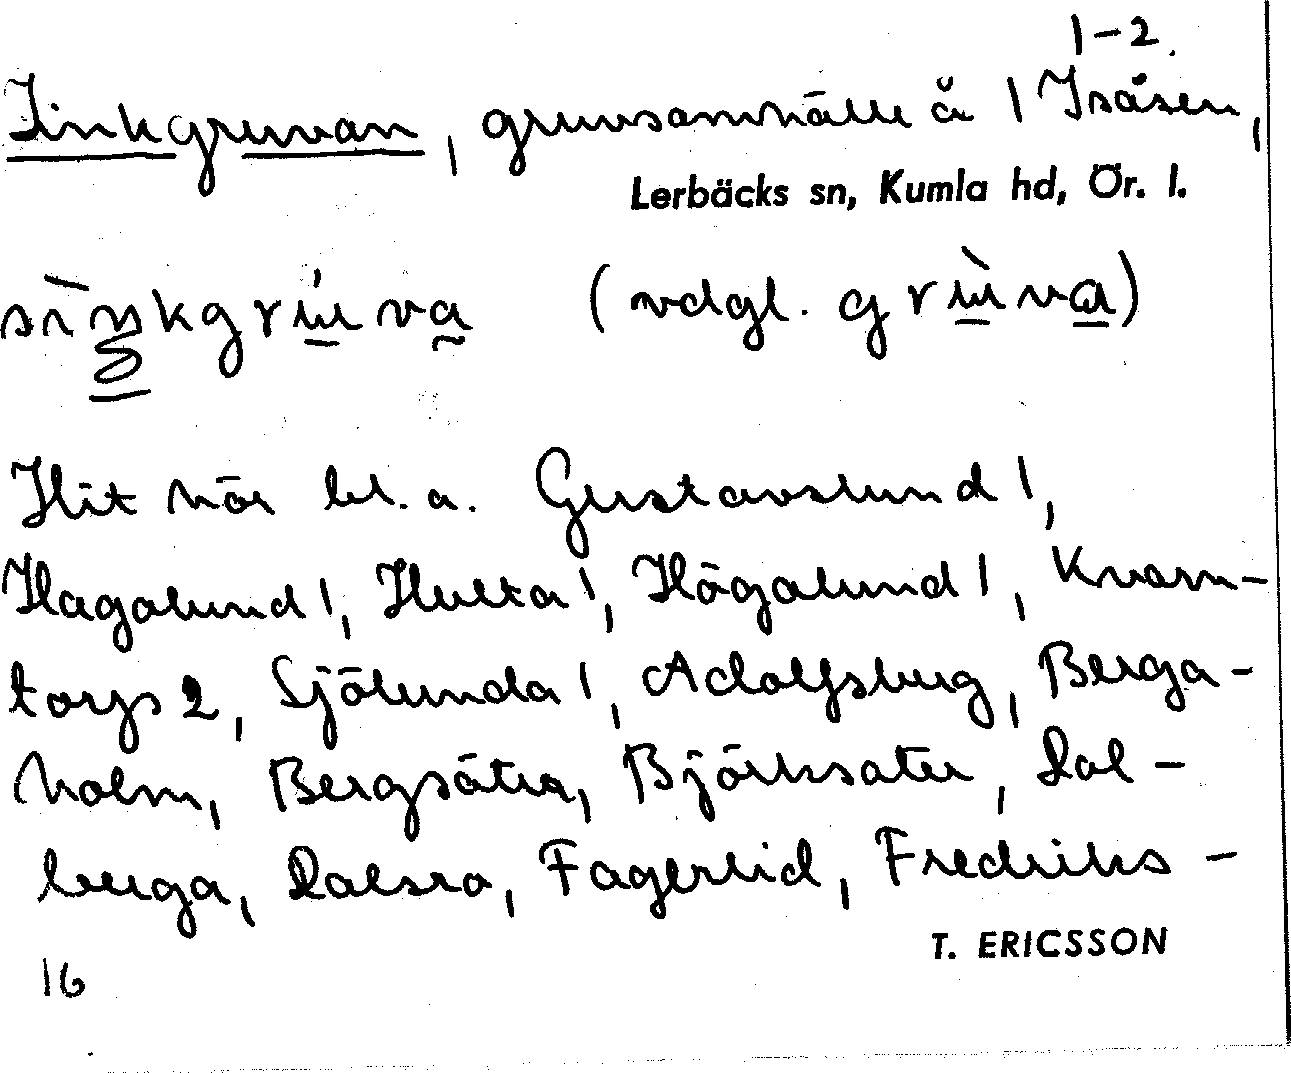 1-2.
Zinkgruvan, gruvsamhälle å 1 Isåsen,
Lerbäcks sn, Kumla hd, Ör. l.
(vdgl.
Hit hör bl.a. Gustavslund 1,
Hagalund 1, Hulta 1, Högalund 1, Kvarn-
torp 2, Sjölunda 1, Adolfsberg, Berga-
holm, Bergsätra, Björksäter, Dal-
berga, Dalsro, Fagerlid, Fredriks-
T. ERICSSON
16